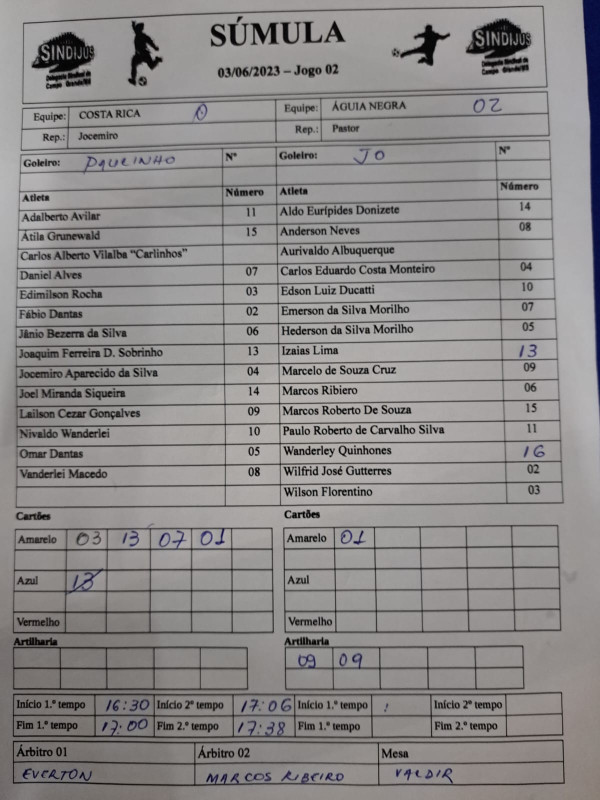 SÚMULA
03/06/2023 – Jogo 02
SINDIJUS
Delegacia Sindical de
Campo Grande/MS
SINDIJUS
Delegacia Sindical de
Campo Grande/MS
Equipe: COSTA RICA 0 Equipe: ÁGUIA NEGRA 02
Rep.: Jocemiro Rep.: Pastor
Goleiro: PQUEINHO Nº Goleiro: JO Nº
Atleta Número Atleta Número
Adalberto Avilar 11 Aldo Eurípides Donizete 14
Átila Grunewald 15 Anderson Neves 08
Carlos Alberto Vilalba "Carlinhos" Aurivaldo Albuquerque
Daniel Alves 07 Carlos Eduardo Costa Monteiro 04
Edimilson Rocha 03 Edson Luiz Ducatti 10
Fábio Dantas 02 Emerson da Silva Morilho 07
Jânio Bezerra da Silva 06 Hederson da Silva Morilho 05
Joaquim Ferreira D. Sobrinho 13 Izaias Lima 13
Jocemiro Aparecido da Silva 04 Marcelo de Souza Cruz 09
Joel Miranda Siqueira 14 Marcos Ribiero 06
Lailson Cezar Gonçalves 09 Marcos Roberto De Souza 15
Nivaldo Wanderlei 10 Paulo Roberto de Carvalho Silva 11
Omar Dantas 05 Wanderley Quinhones 16
Vanderlei Macedo 08 Wilfrid José Gutterres 02
Wilson Florentino 03
Cartões Cartões
Amarelo 03 13 07 01 Amarelo 01
Azul 13 Azul
Vermelho Vermelho
Artilharia Artilharia
09 09
Início 1.º tempo 16:30 Início 2º tempo 17:06 Início 1.º tempo : Início 2º tempo
Fim 1.º tempo 17:00 Fim 2.º tempo 17:38 Fim 1.º tempo Fim 2.º tempo
Árbitro 01 Árbitro 02 Mesa
EVERTON MARCOS RIBEIRO VALDIR